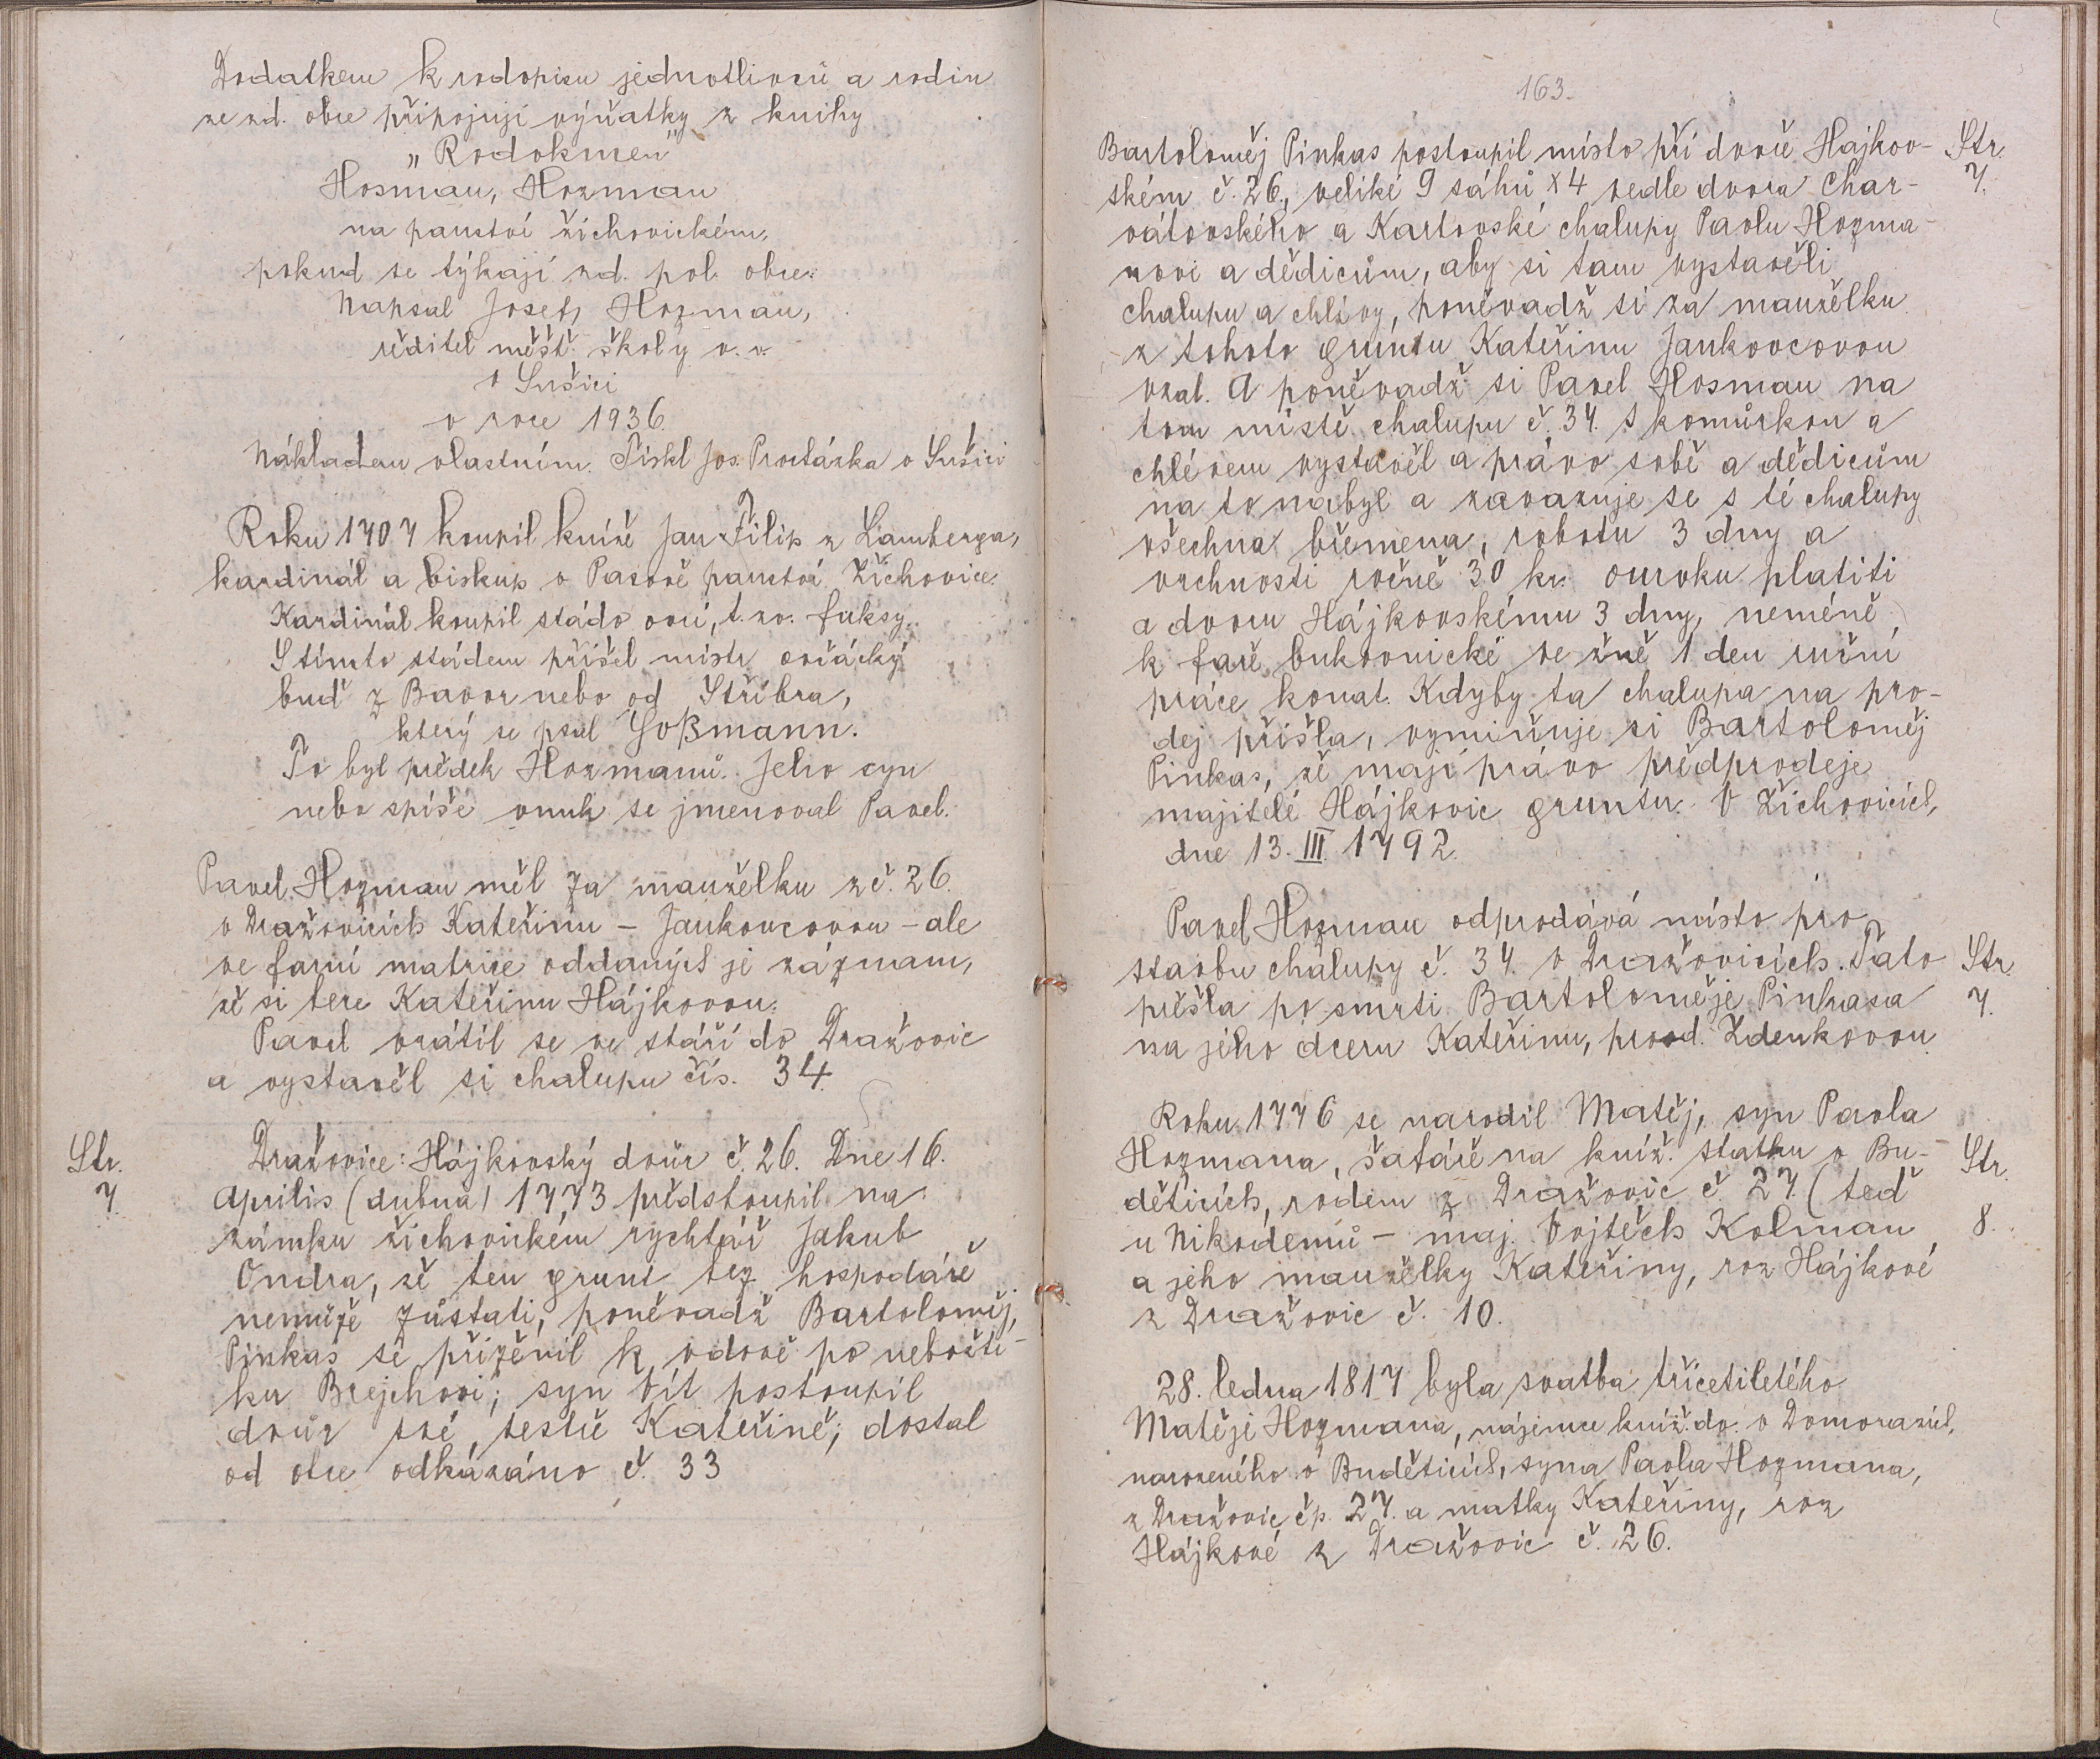 Dodatkem k rodopisu jednotlivců a rodin
ze zd. obce připojuji výňatky z knihy
„Rodokmen"
Hosman, Hozman
na panství žichovickém,
pokud se týkají zd. pol. obce.
Napsal Josef Hozman,
ředitel měšť. školy v. v.
v Sušici
v roce 1936.
Nákladem vlastním. Tiskl Jos. Procházka v Sušici
Roku 1707 koupil kníže Jan Filip z Lamberga,
kardinál a biskup v Pasově panství Žichovice.
Kardinál koupil stádo ovcí, t. zv. fuksy.
S tímto stádem přišel mistr ovčácký
buď z Bavor nebo od Stříbra,
který se psal Hoßmann.
To byl předek Hozmanů. Jeho syn
nebo spíše vnuk se jmenoval Pavel.
Pavel Hozman měl za manželku z č. 26.
v Dražovicích Kateřinu – Jankovcovou – ale
ve farní matrice oddaných je záznam,
že si bere Kateřinu Hájkovou.
Pavel vrátil se ve stáří do Dražovic
a vystavěl si chalupu čís. 34.
Str.
7.
Dražovice: Hájkovský dvůr č. 26. Dne 16.
Aprilis (dubna) 1773 předstoupil na
zámku žichovickém rychtář Jakub
Ondra, že ten grunt bez hospodáře
nemůže zůstati, poněvadž Bartoloměj
Pinkas se přiženil k vdově po neboští-
ku Brejchovi; syn Vít postoupil
dvůr své sestře Kateřině; dostal
od otce odkázáno č. 33
163.
Bartoloměj Pinkas postoupil místo při dvoře Hájkov-
Str.
7.
ském č. 26., veliké 9 sáhů x 4 vedle dvora Char-
vátovského a Kartovské chalupy Pavlu Hozma-
novi a dědicům, aby si tam vystavěli
chalupu a chlívy, poněvadž si za manželku
z tohoto gruntu Kateřinu Jankovcovou
vzal. A poněvadž si Pavel Hosman na
tom místě chalupu č. 34. s komůrkou a
chlévem vystavěl a právo sobě a dědicům
na to nabyl a zavazuje se s té chalupy
všechna břemena, robotu 3 dny a
vrchnosti ročně 30 kr. ouroku platiti
a dvoru Hájkovskému 3 dny, neméně
k faře bukovnické ve žně 1 den ruční
práce konat. Kdyby ta chalupa na pro-
dej přišla, vymiňuje si Bartoloměj
Pinkas, že mají právo předprodeje
majitelé Hájkovic gruntu. V Žichovicích,
dne 13. III. 1792.
Pavel Hozman odprodává místo pro
stavbu chalupy č. 34. v Dražovicích. Tato
Str.
7.
přešla po smrti Bartoloměje Pinkasa
na jeho dceru Kateřinu, provd. Zdenkovou
Roku 1776 se narodil Matěj, syn Pavla
Hozmana, šafáře na kníž. statku v Bu-
Str.
8.
děticích, rodem z Dražovic č. 27. (teď
u Nikodemů – maj. Vojtěch Kolman
a jeho manželky Kateřiny, roz Hájkové
z Dražovic č. 10.
28. ledna 1817 byla svatba třicetiletého
Matěje Hozmana, nájemce kníž. dv. v Domorazích,
narozeného v Buděticích, syna Pavla Hozmana,
z Dražovic čp. 27. a matky Kateřiny, roz
Hájkové z Dražovic č. 26.